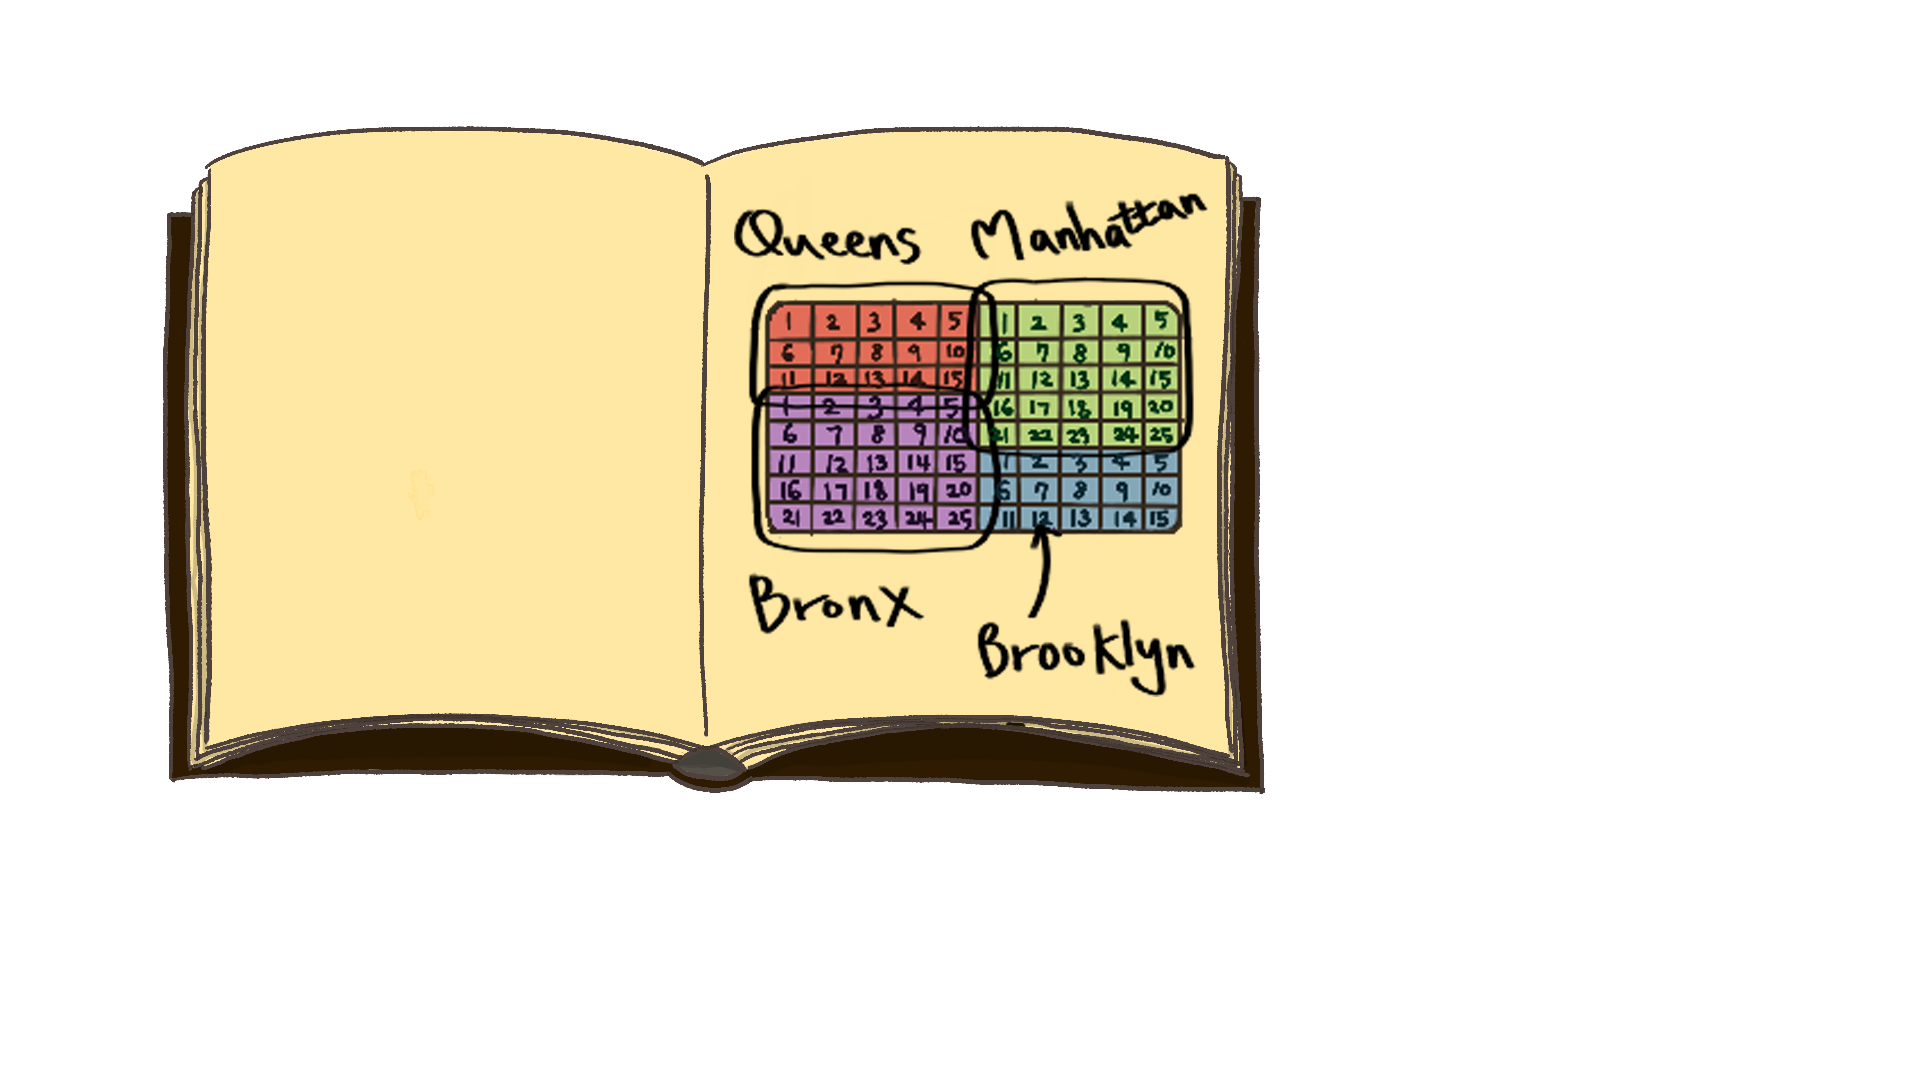 Queens Manhattan
1 2 3 4 5 1 2 3 4 5
6 7 8 9 10 6 7 8 9 10
11 12 13 14 15 11 12 13 14 15
1 2 3 4 5 16 17 18 19 20
6 7 8 9 10 21 22 23 24 25
11 12 13 14 15 1 2 3 4 5
16 17 18 19 20 6 7 8 9 10
21 22 23 24 25 11 12 13 14 15
Bronx
Brooklyn